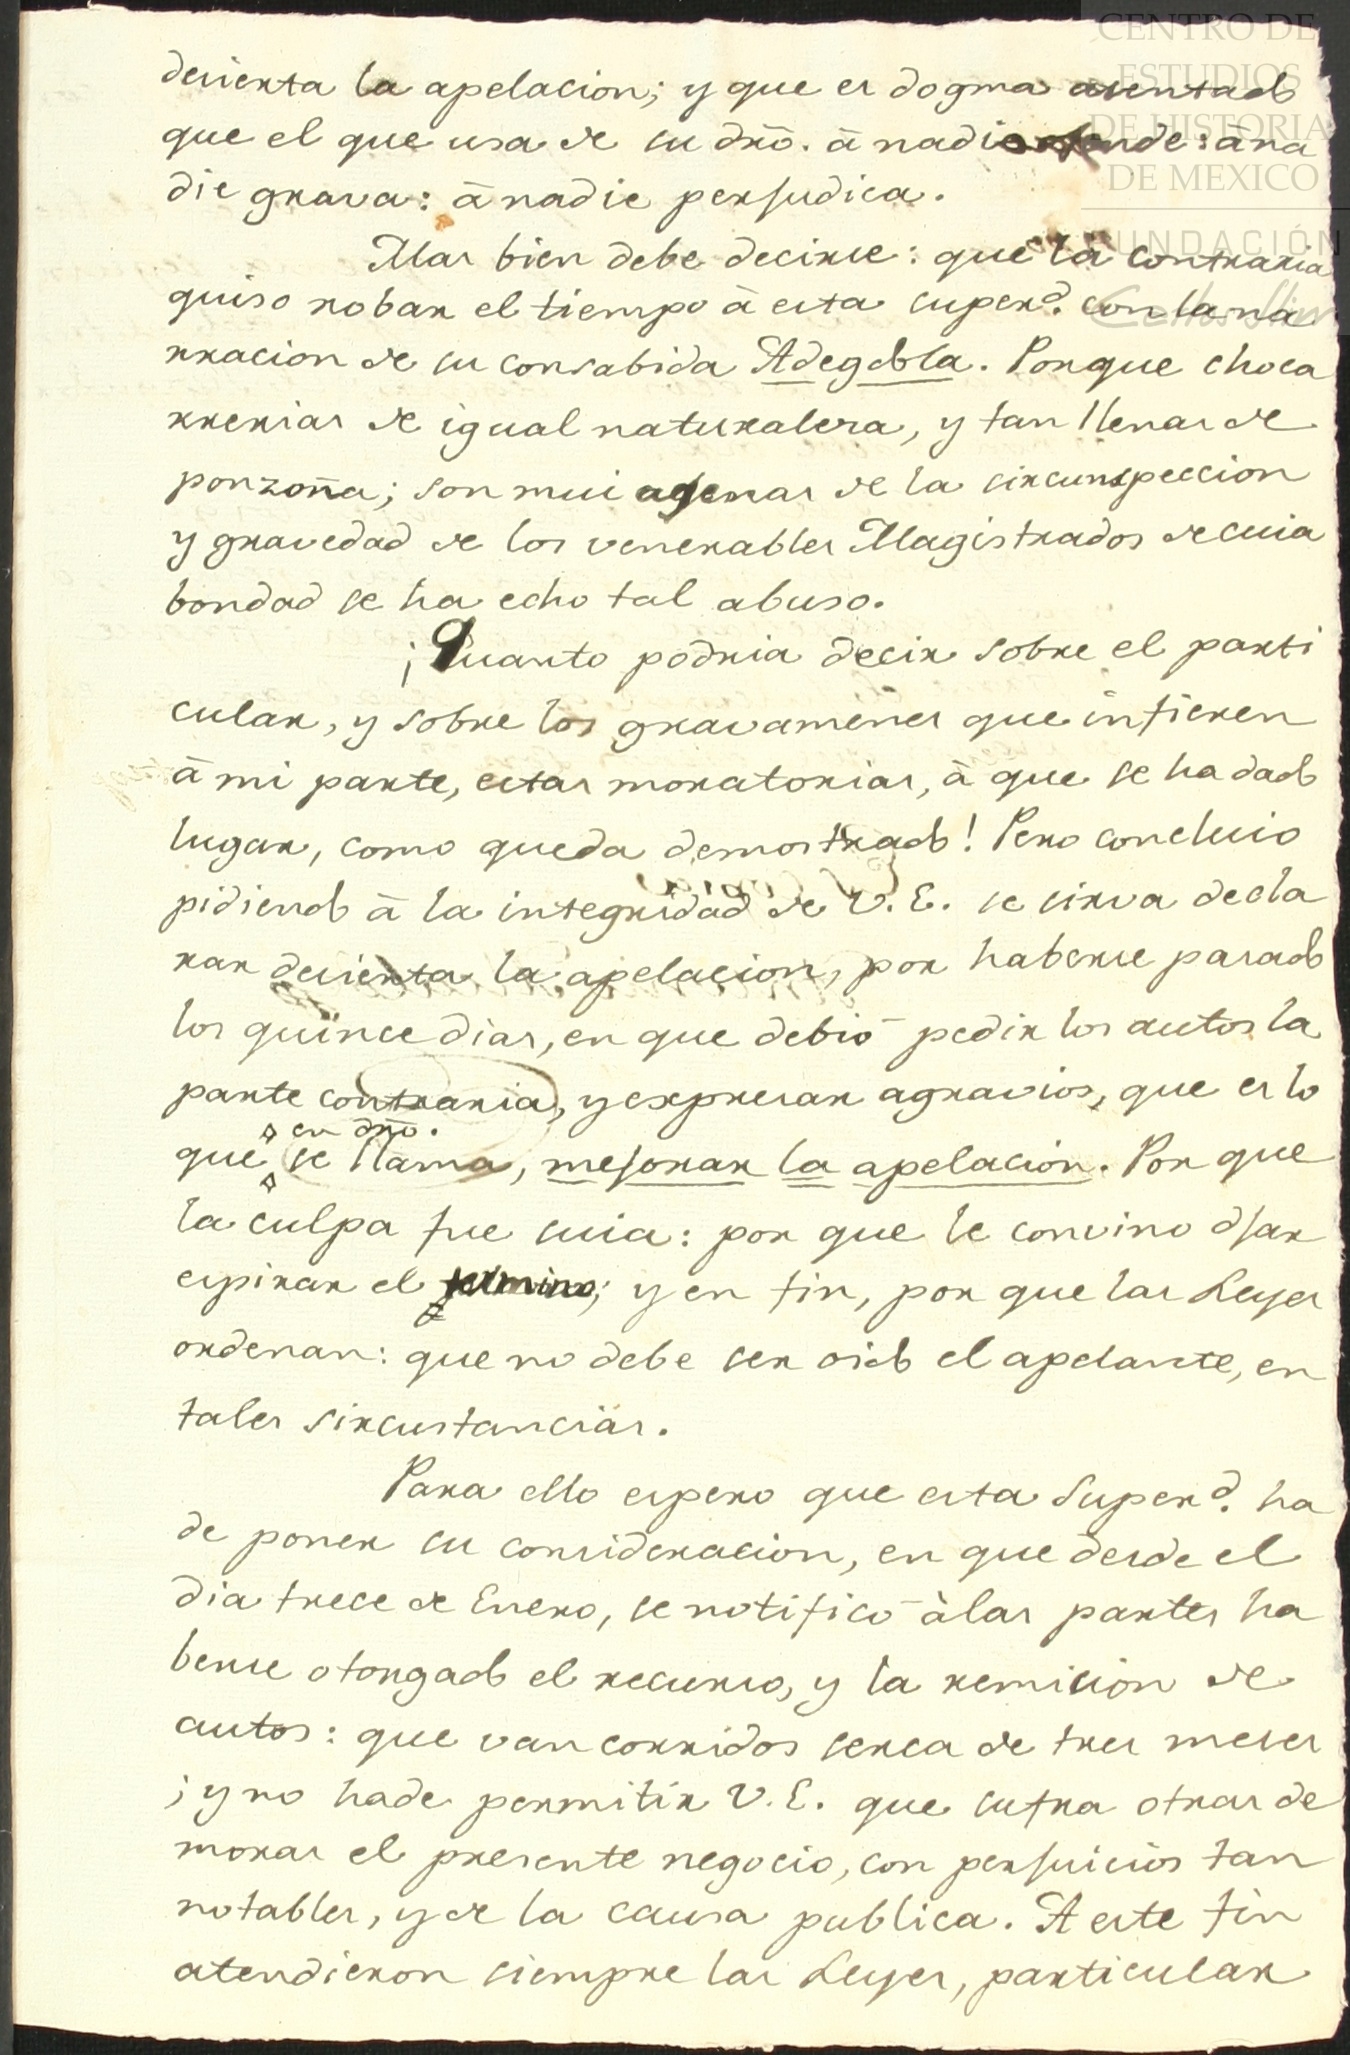 CENTRO DE
ESTUDIOS
DE HISTORIA
DE MEXICO
FUNDACIÓN
Carlos Slim
decierta la apelacion; y que es dogma asentado
que el que usa de su dro̅. â nadie ofende: âna
die grava: â nadie perjudica.
Mas bien debe decirse: que la contraria
quiso robar el tiempo â esta super.ᵈ con la na
rracion de su consabida Adegobla. Porque choca
rrerias de igual naturalesa, y tan llenas de
ponzoña; son mui agenas de la circunspeccion
y gravedad de los venerables Magistrados de cuia
bondad se ha echo tal abuso.
¡Quanto podria decir sobre el parti
cular, y sobre los gravamenes que infieren
â mi parte, estas moratorias, â que se ha dado
lugar, como queda demostrado! Pero concluio
pidiendo â la integridad de V.E. se sirva decla
rar decierta la apelacion, por haberse pasado
los quince dias, en que debiô pedir los autos la
parte contraria, y expresar agravios, que es lo
en dro̅.
que se llama, mejorar la apelacion. Por que
la culpa fue suia: por que le convino djar
espirar el termino; y en fin, por que las Leyes
ordenan: que no debe ser oido el apelante, en
tales sircustancias.
Para ello espero que esta Super.ᵈ ha
de poner su consideracion, en que desde el
dia trece de Enero, se notificô âlas partes ha
berse otorgado el recurso, y la remision de
autos: que van corridos serca de tres meses
; y no hade permitir V.E. que sufra otras de
moras el presente negocio, con perjuicios tan
notables, y de la causa publica. A este fin
atendieron siempre las Leyes, particular